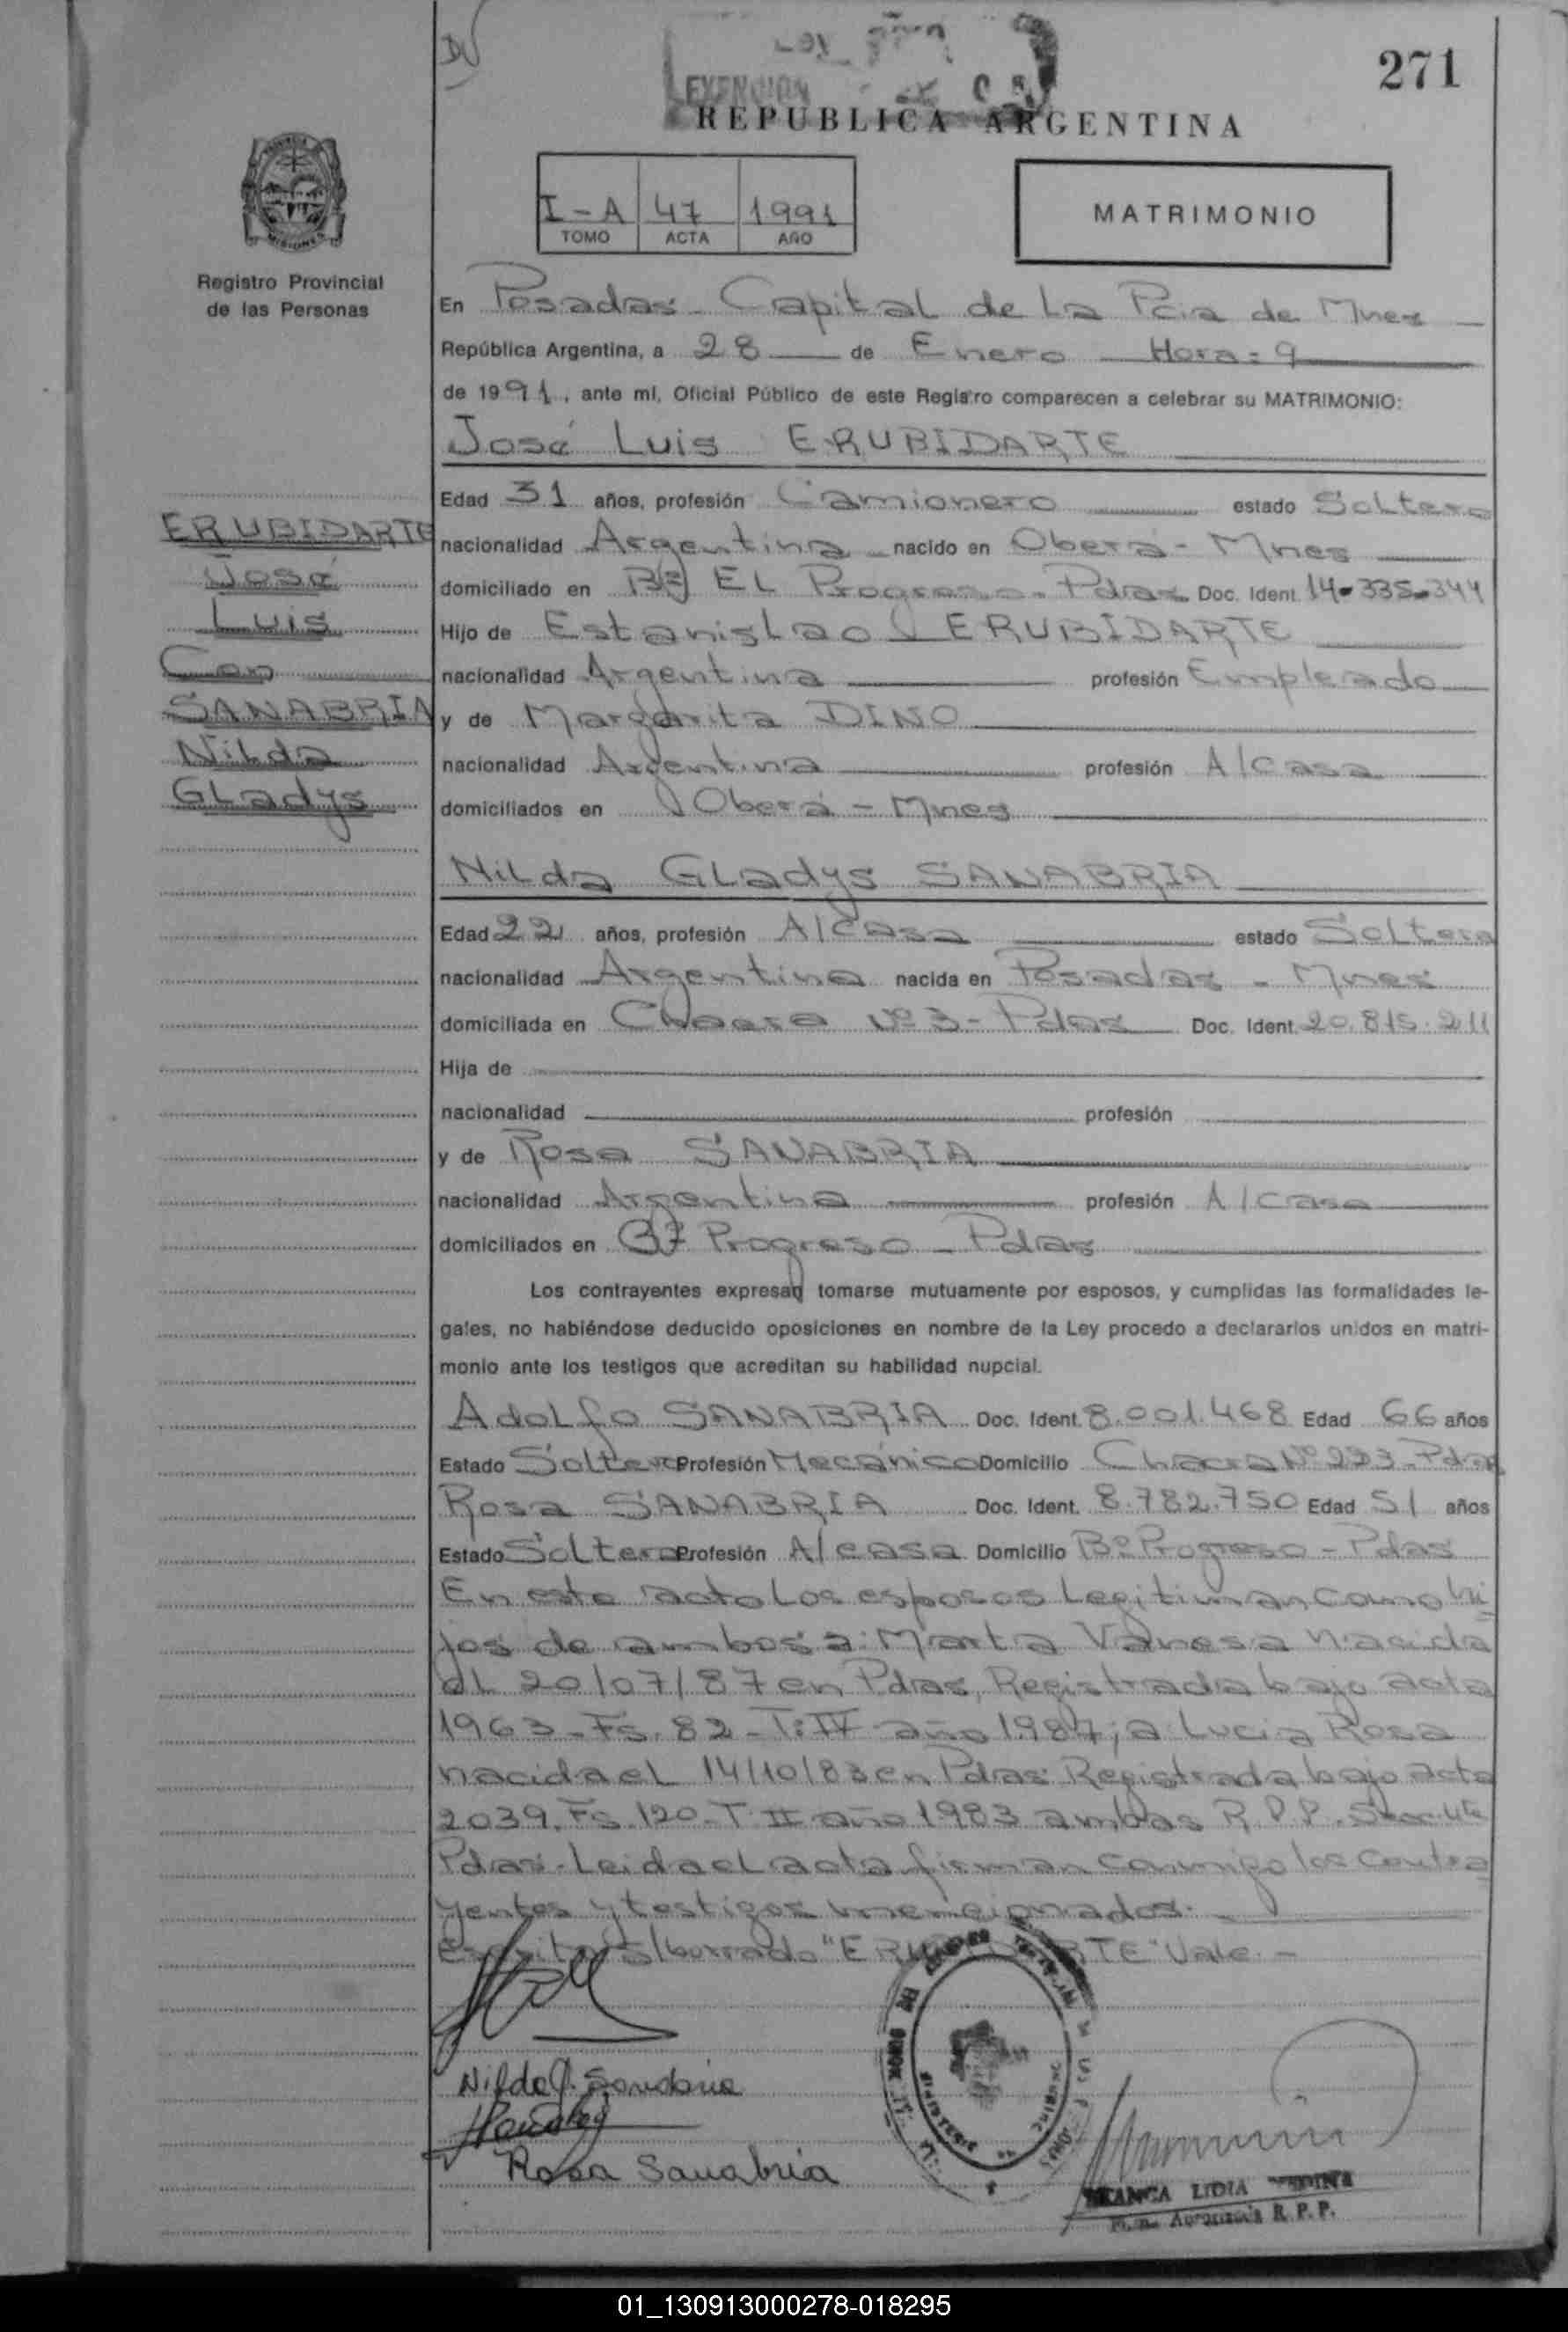 271
EXENCION
REPUBLICA ARGENTINA
I-A 47 1991
TOMO ACTA AÑO
MATRIMONIO
MISIONES
Registro Provincial
de las Personas
En Posadas - Capital de La Pcia de Mnes
República Argentina, a 28 de Enero Hora: 9
de 1991, ante mí, Oficial Público de este Registro comparecen a celebrar su MATRIMONIO:
José Luis ERUBIDARTE
Edad 31 años, profesión Camionero estado Soltero
nacionalidad Argentina nacido en Oberá - Mnes
domiciliado en Bº EL Progreso - Pdas Doc. Ident. 14-335-344
Hijo de Estanislao ERUBIDARTE
nacionalidad Argentina profesión Empleado
y de Margarita DINO
nacionalidad Argentina profesión A/casa
domiciliados en Oberá - Mnes
ERUBIDARTE
José
Luis
Con
SANABRIA
Nilda
GLadys
Nilda GLadys SANABRIA
Edad 22 años, profesión A/casa estado Soltera
nacionalidad Argentina nacida en Posadas - Mnes
domiciliada en Chacra Nº 3 - Pdas Doc. Ident. 20.815.211
Hija de
nacionalidad profesión
y de Rosa SANABRIA
nacionalidad Argentina profesión A/casa
domiciliados en Progreso - Pdas
Los contrayentes expresan tomarse mutuamente por esposos, y cumplidas las formalidades le-
gales, no habiéndose deducido oposiciones en nombre de la Ley procedo a declararlos unidos en matri-
monio ante los testigos que acreditan su habilidad nupcial.
AdoLfo SANABRIA Doc. Ident. 8.001.468 Edad 66 años
Estado Soltero Profesión Mecánico Domicilio Chacra Nº 223 - Pdas
Rosa SANABRIA Doc. Ident. 8.782.750 Edad 51 años
Estado Soltera Profesión A/casa Domicilio Bº Progreso - Pdas
En este acto Los esposos Legitiman como hi-
jos de ambos a: Marta Vanesa nacida
eL 20/07/87 en Pdas, Registrada bajo acta
1963 - Fs. 82 - T: IV año 1987; a Lucia Rosa
nacida eL 14/10/83 en Pdas Registrada bajo acta
2039. Fs. 120 - T. II año 1983 ambas R.P.P.
Pdas. Leida el acta firman conmigo los contra
yentes y testigos mencionados.
Escrito s/borrado "ERUBIDARTE" Vale. -
Nilda G. Sanabria
Rosa Sanabria
BLANCA LIDIA
R. P. P.
01_130913000278-018295